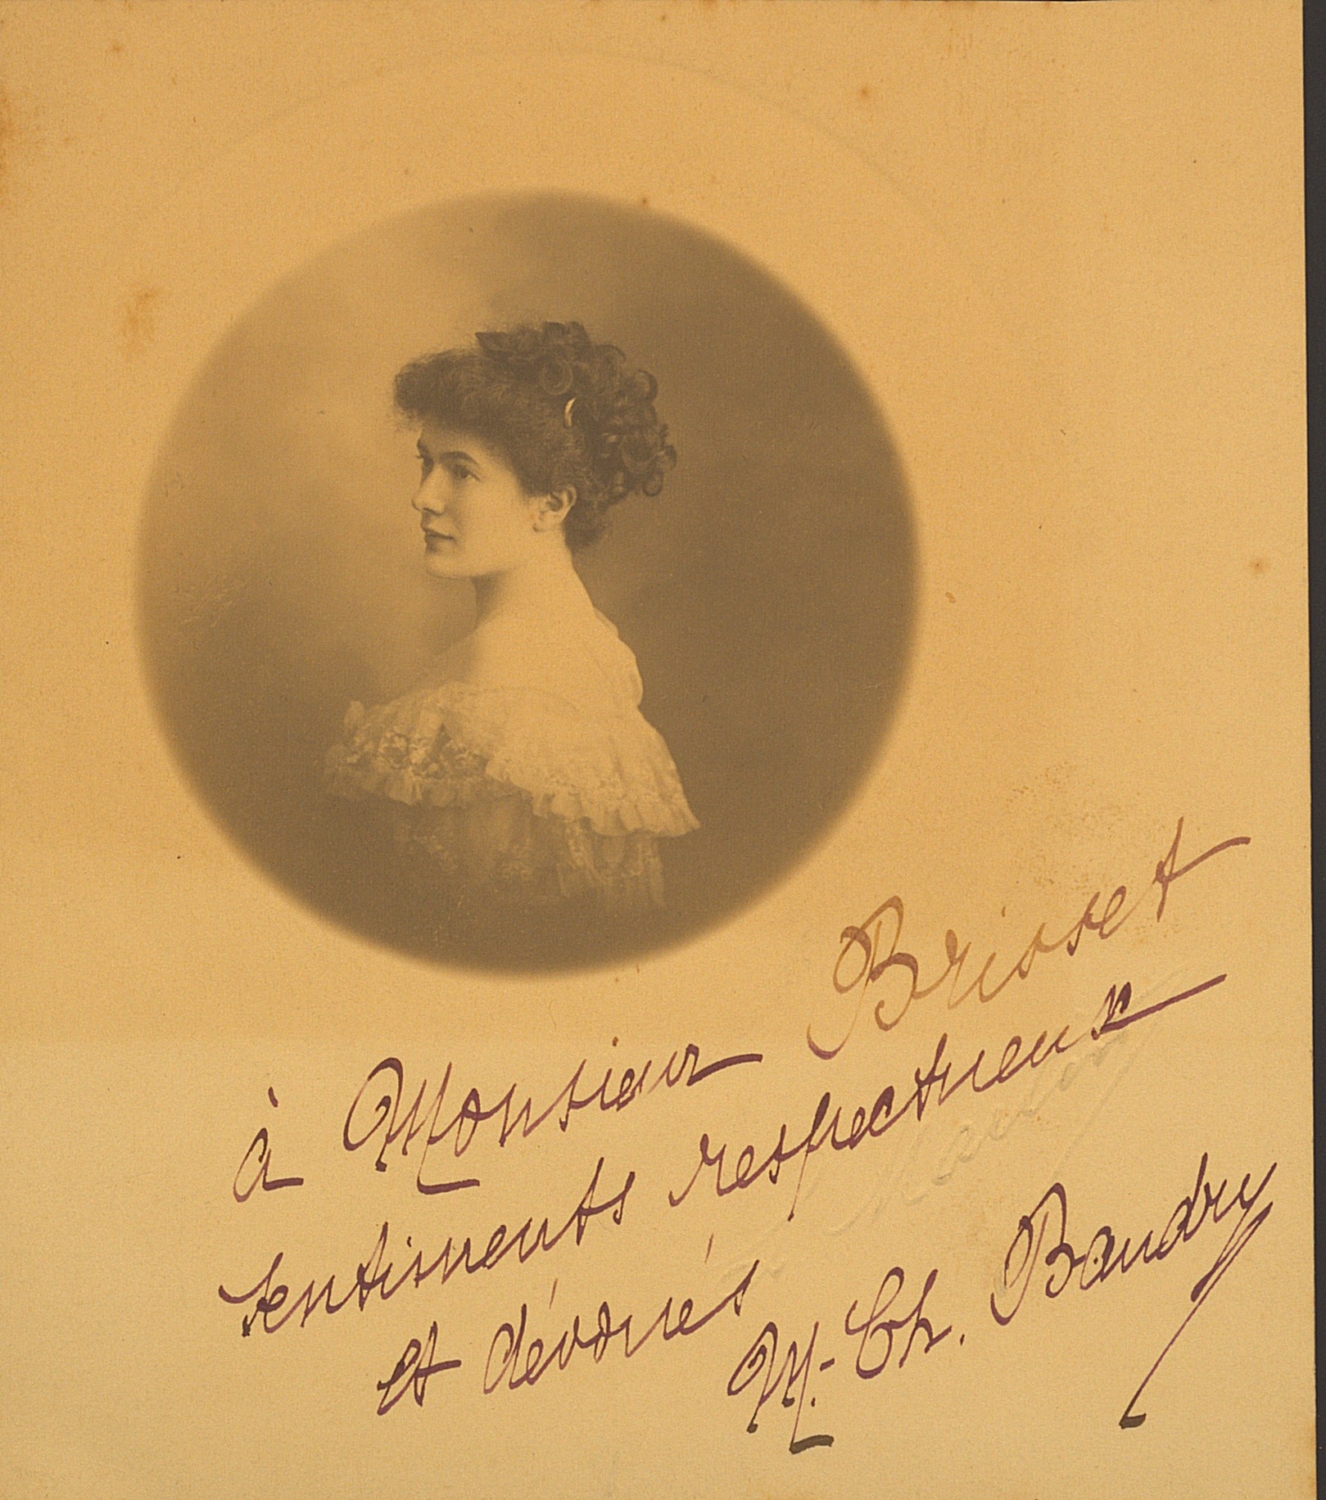 à Monsieur Brisset
sentiments respectueux
et dévoués
M.-Ch. Baudry